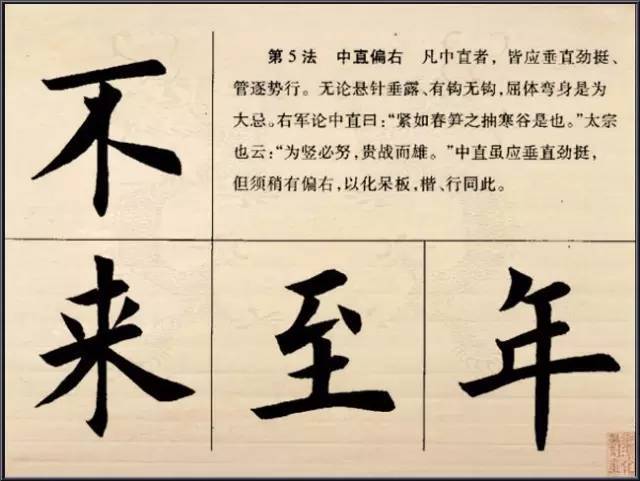 不
第5法 中直偏右 凡中直者，皆应垂直劲挺、
管逐势行。无论悬针垂露、有钩无钩，屈体弯身是为
大忌。右军论中直曰：“紧如春笋之抽寒谷是也。”太宗
也云：“为竖必努，贵战而雄。”中直虽应垂直劲挺，
但须稍有偏右，以化呆板，楷、行同此。
来 至 年